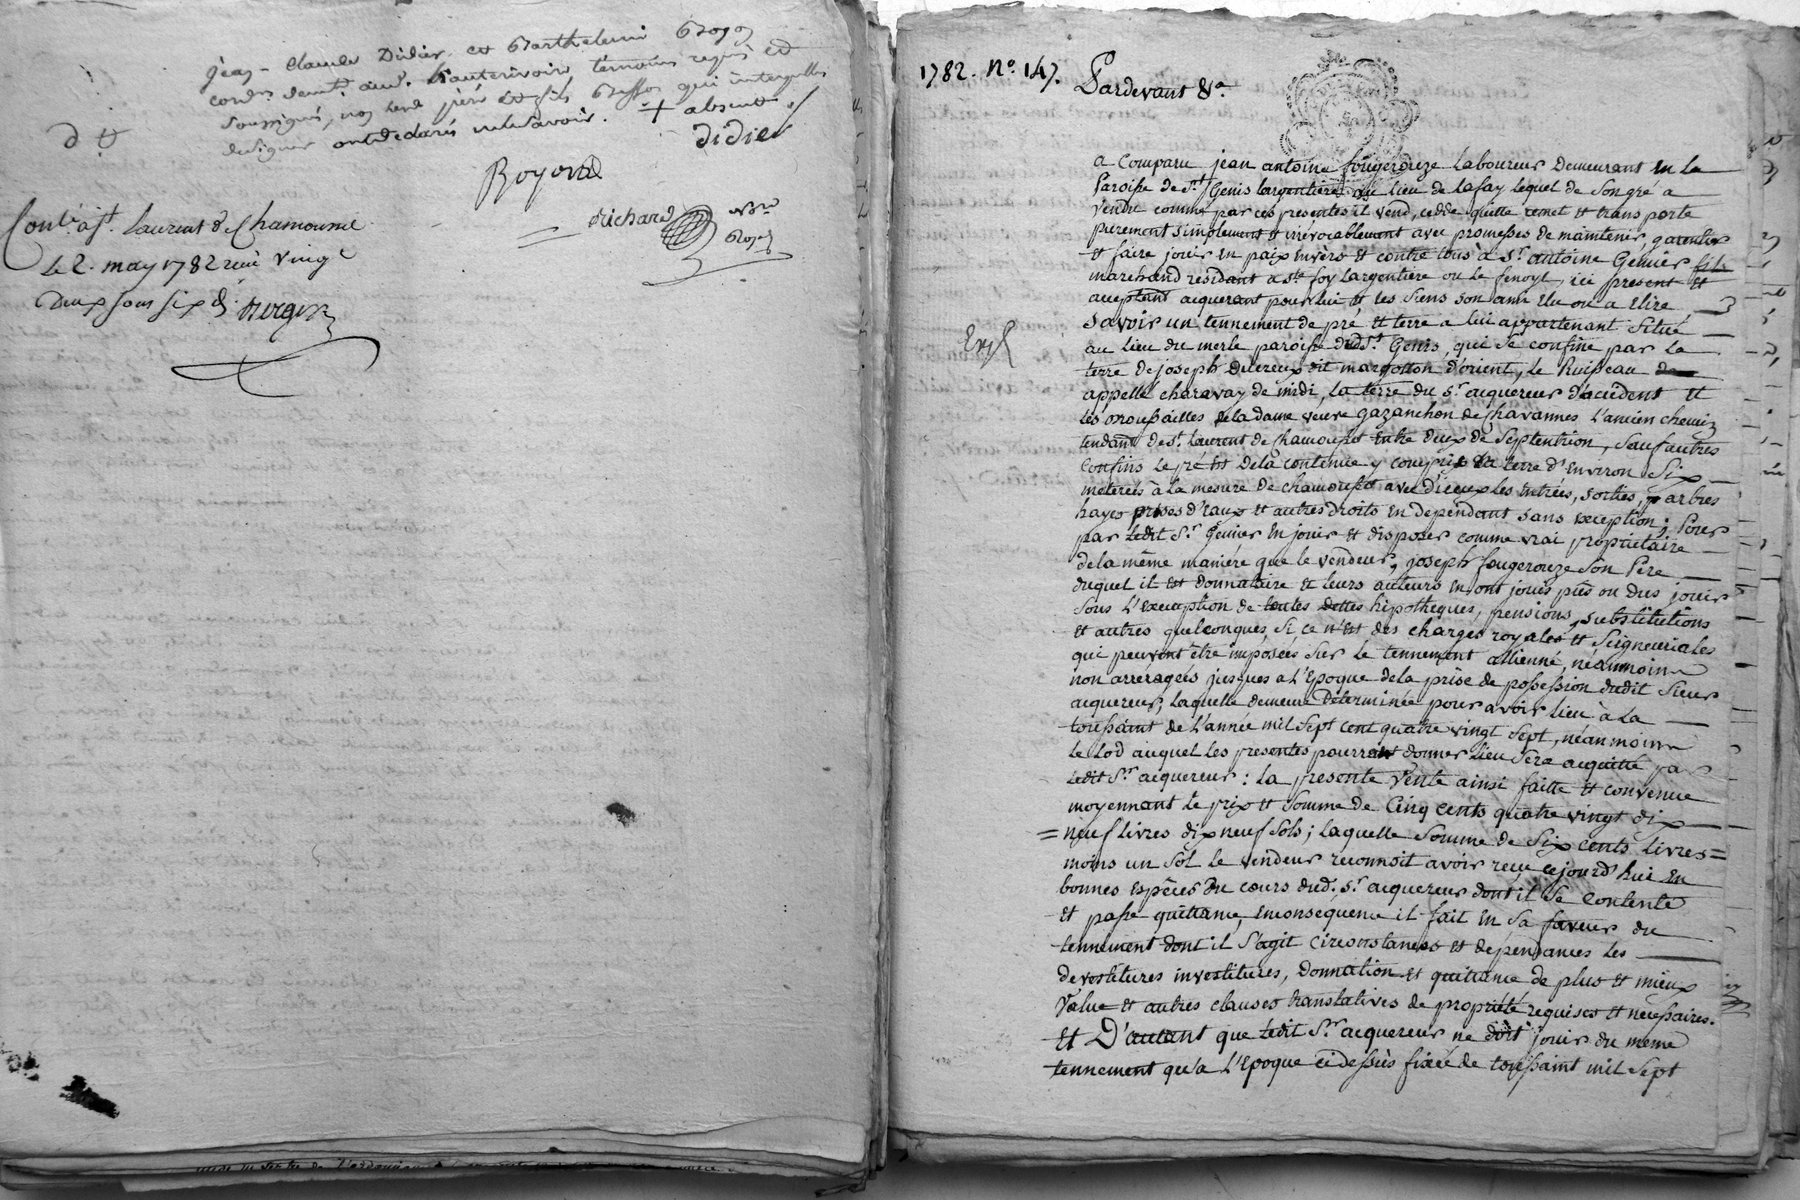 jean-Claude Didier et Barthelemi Boyon
cord.rs demt. aud. hauterivoire, témoins requis et
soussignés, non led. père et fils qui interpellés
de signer ont declarés ne le savoir. + absent
didier
Boyond
drichard
Contlé à St. laurent de Chamousset
le 2. may 1782 reçu vingt
deux sous six d.
1782. No. 147.
Pardevant &a
a Comparu jean antoine fougerouze Laboureur Demeurant En la
Paroisse de St. Genis Largentière au lieu de Lafay lequel de Son gré a
Vendu comme par ces presentes il vend, cedde quitte remet et transporte
purement simplement et irrévocablement avec promesses de maintenir, garentir
et faire jouir en paix envers et contre tous à Sr. antoine Genier fils
marchand residant a Ste. foy Largentiere ou le fenoyl, ici present et
aceptant aquerant pour lui et les Siens son ami Elu ou a Elire
Savoir un tennement de pré et terre a lui appartenant Situé
Exp
au lieu du merle paroisse dud. St. Genis, qui se confine par la
terre de joseph ducreux dit margotton d'orient, le Ruisseau
appellé charavay de midi, la terre du Sr. acquereur d'accident et
les broussailles de la dame veuve gazanchon de chavannes L'ancien chemin
tendant de St. Laurent de chamousset Entre deux de Septentrion, Sauf autres
Confins Le pré est de la contenue y compris la terre d'Environ Six
meterées à la mesure de chamousset avec d'iceux les entrées, sorties, arbres
hayes prises d'eaux et autres droits en dépendant sans exception; Pour
par ledit Sr. Genier En jouir et disposer comme vrai propriétaire
de la même maniére que le vendeur, joseph fougerouze Son Pere
duquel il est donnataire et leurs auteurs En ont jouis, pus ou dus jouir
Sous L'exception de toutes dettes hipothèques, pensions, substitutions
et autres quelconques, Si, ce n'est des charges royales et Seigneuriales
qui peuvent être imposées Sur le tennement allienné, néanmoins
non arreragées jusques à l'Epoque de la prise de possession dudit Sieur
acquereur, laquelle demeure Déterminée pour avoir Lieu à La
toussaint de L'année mil Sept cent quatre vingt Sept, néanmoins
le Lod auquel les presentes pourront donner Lieu Sera acquitté par
ledit Sr. acquereur: la presente Vente ainsi faitte et convenue
moyennant le prix et Somme de Cinq cents quatre vingt dix
= neuf livres dix neuf Sols; laquelle Somme de Six cents livres =
moins un Sol le vendeur reconnoit avoir reçu cejourd'hui En
bonnes Espèces du cours dud. Sr. acquereur dont il Se Contente
et passe quittance, En consequence il fait En Sa faveur du
tennement dont il S'agit circonstances et dependances les
devestitures investitures, donnation et quittance de plus et mieux
Value et autres clauses translatives de propriété requises et necessaires.
Et D'autant que ledit Sr. acquereur ne doit jouir du même
tennement qu'a L'Epoque cidessus fixée de toussaint mil Sept